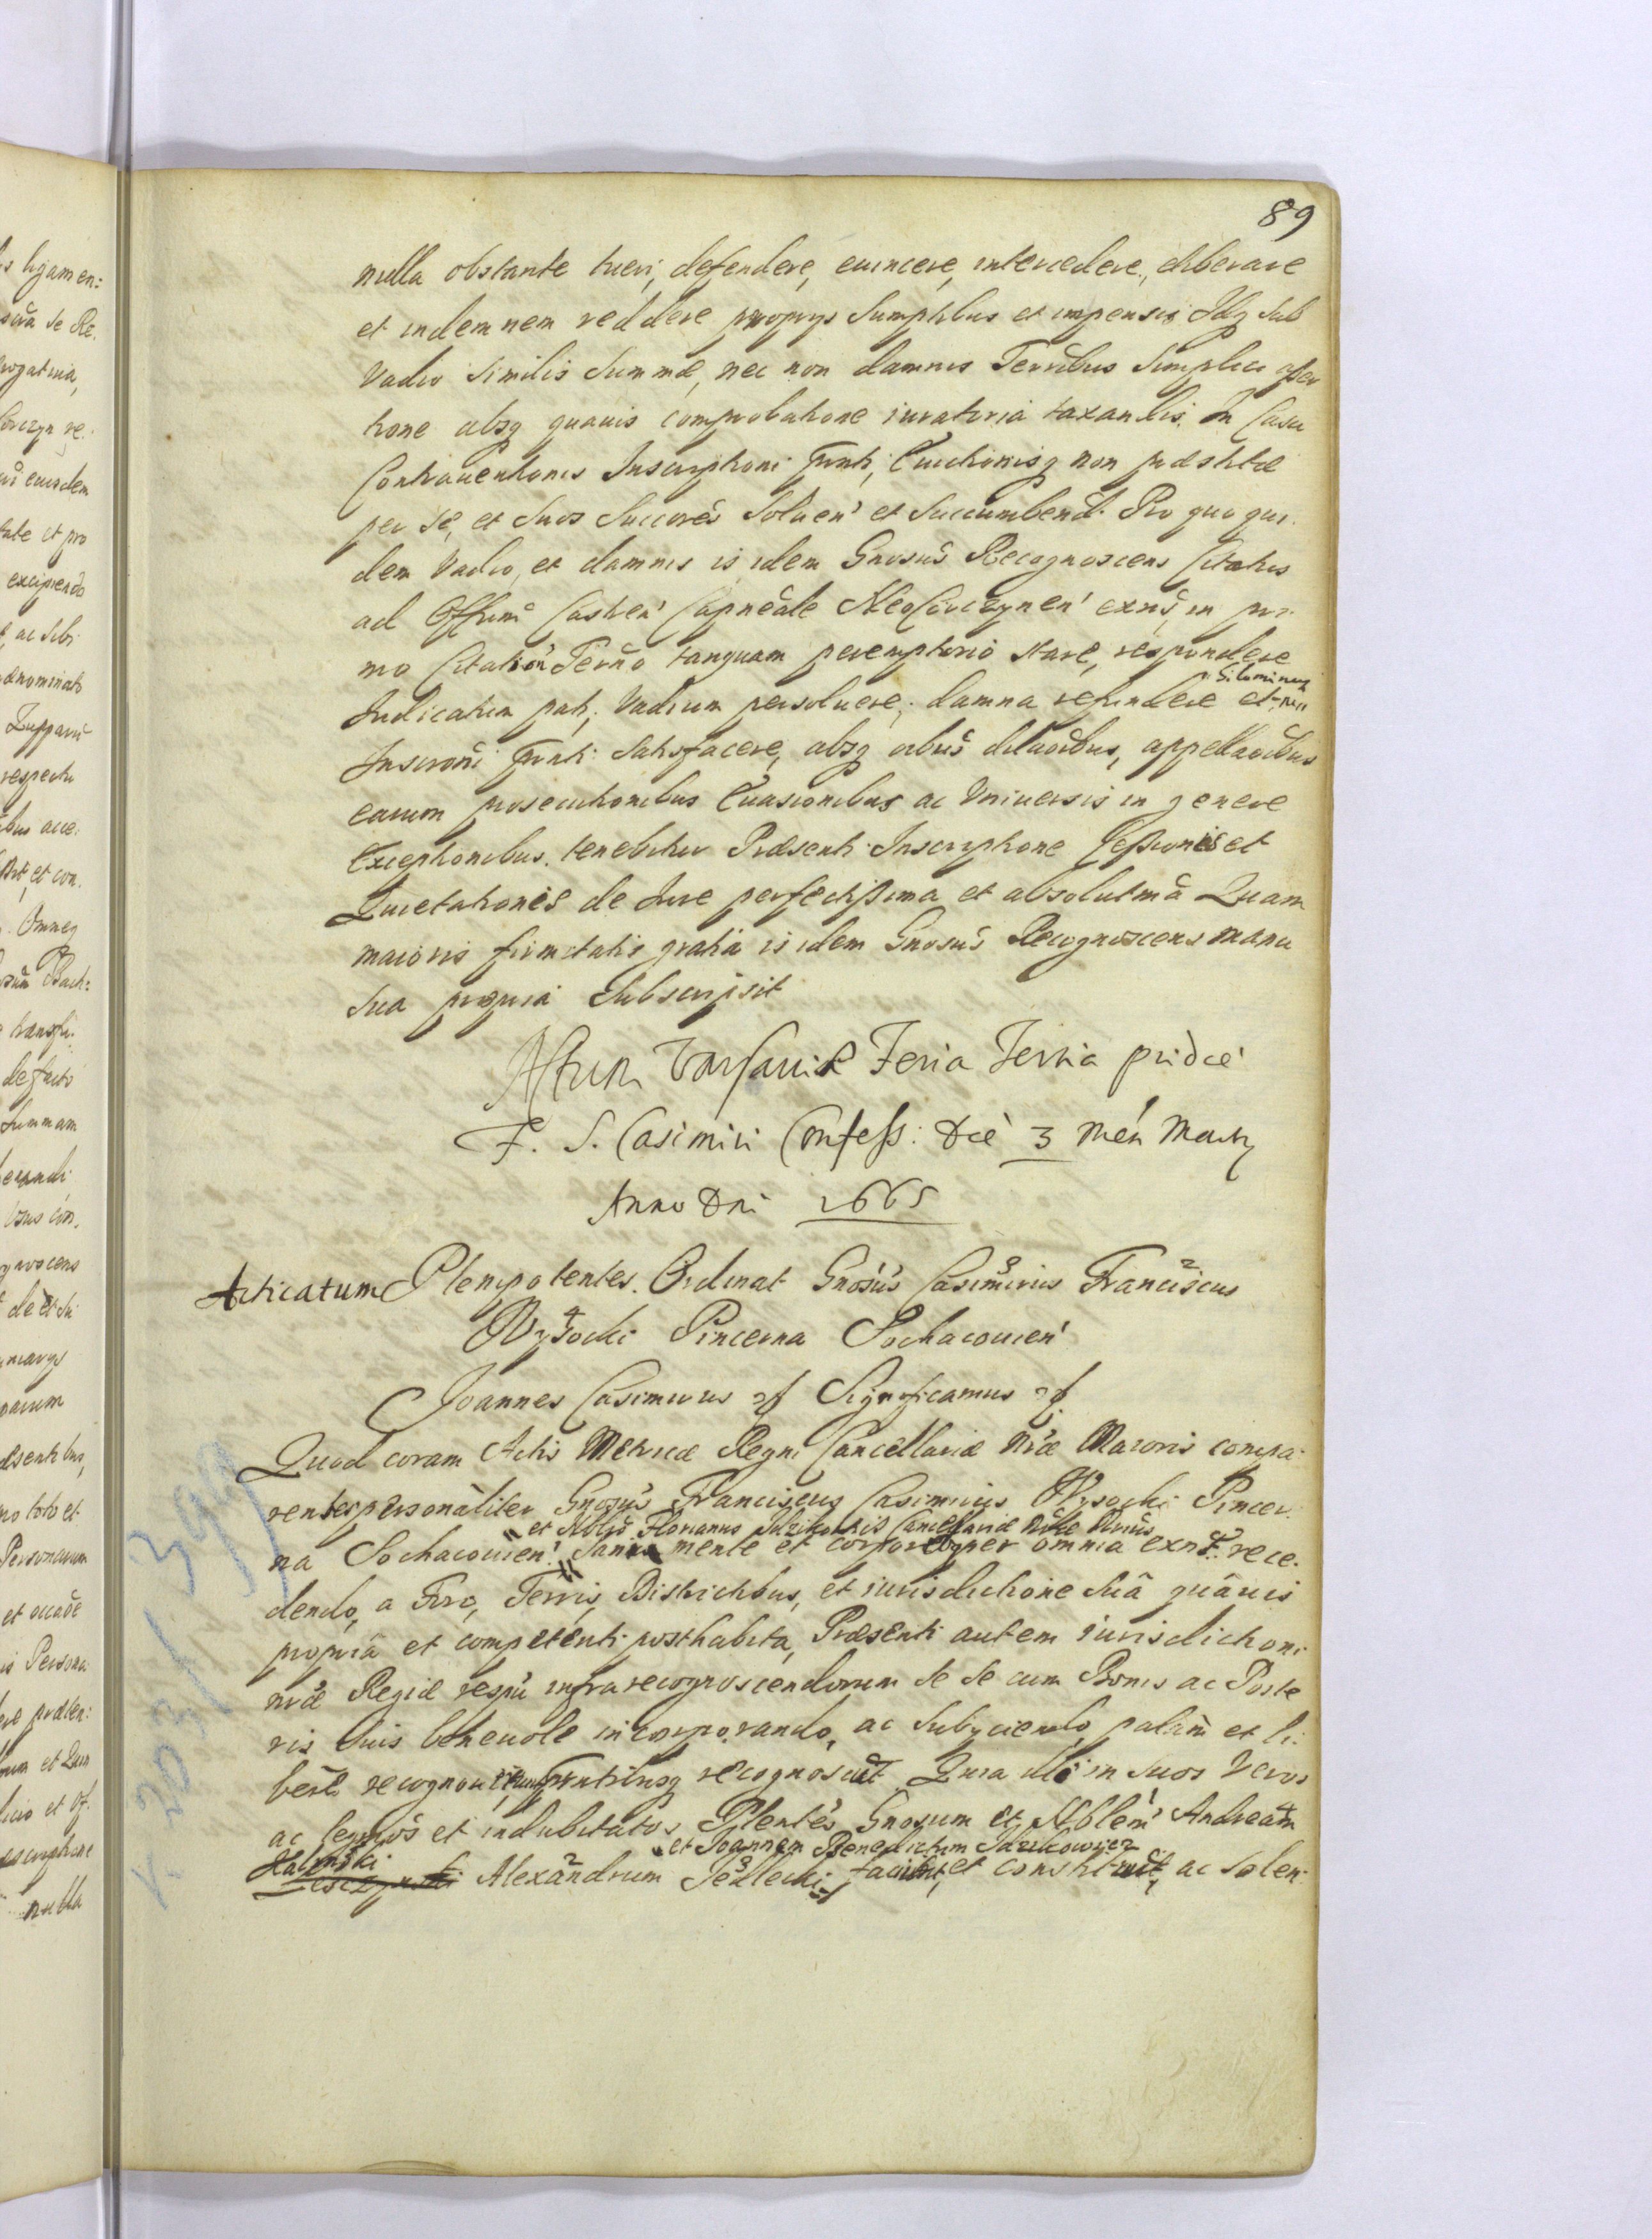 89
nulla obstante tueri, defendere, euincere, intercedere, eliberare
et indemnem reddere proprys Sumptibus et impensis Idq Sub
Vadio Similis Summæ, nec non damnis Terribus Simplici asser
tione absq quauis comprobatione iuratoria taxandis. In Casu
Contrauentionis Inscriptioni pnti, Euictionisq non præstitæ
per se, et Suos Succorẽs Soluen' et Succumbend. Pro quo qui.
dem Vadio, et damnis is idem Gnosus Recognoscens Citatus
ad Offium Castren' Capneale NeoCorczynen' exns, in pri
mo Citaton' Termo tanquam peremptorio stare, respondere
Iudicatum pati, Vadium persoluere, damna refundere et nihilominus
Inscroni pnti Satisfacere, absq oibus dilaoibus, appellaoibus
earum prosecutionibus Euasionibus ac Vniuersis in genere
Exceptionibus. tenebitur Præsenti Inscriptione Cessionis et
Quietationis de Iure perfectissima et absolutma Quam
maioris firmitatis gratia is idem Gnosus Recognoscens manu
sua propria Subscripsit
Actum Varsauiæ Feria Tertia pridie
F. S. Casimiri Confess: Die 3 Men Marty
Anno Dni 1665
Acticatum Plenipotentes Ordinat Gnosus Casimirus Franciscus
Wysocki Pincerna Sochacouien'
Joannes Casimirus etc Significamus etc
Quod coram Actis Metricæ Regni Cancellariæ Nræ Maioris compa-
rentes personaliter Gnosus Franciscus Casimirus Wysocki Pincer
et Nblis Florianus Cancellariæ Nræ
na Sochacouien' Sana mente et corpore per omnia exns rece.
dendo, a Foro, Terris, Districtibus, et iurisdictione Suâ quâuis
propriâ et competenti posthabita, Præsenti autem iurisdictioni
nræ Regiæ respu infra recognoscendorum se se cum Bonis ac Poste
ris Suis beneuole incorporando, ac Subyciendo, palam et li:
bere recognouerunt, pntibusq recognoscut Quia illi in Suos Veros
ac legmos et indubitatos Plentes Gnosum et Nblem Andream
et Joannem Benedictum
Halenski Alexandrum Sedlecki faciunt, et constituit, ac Solen:
K 203/399